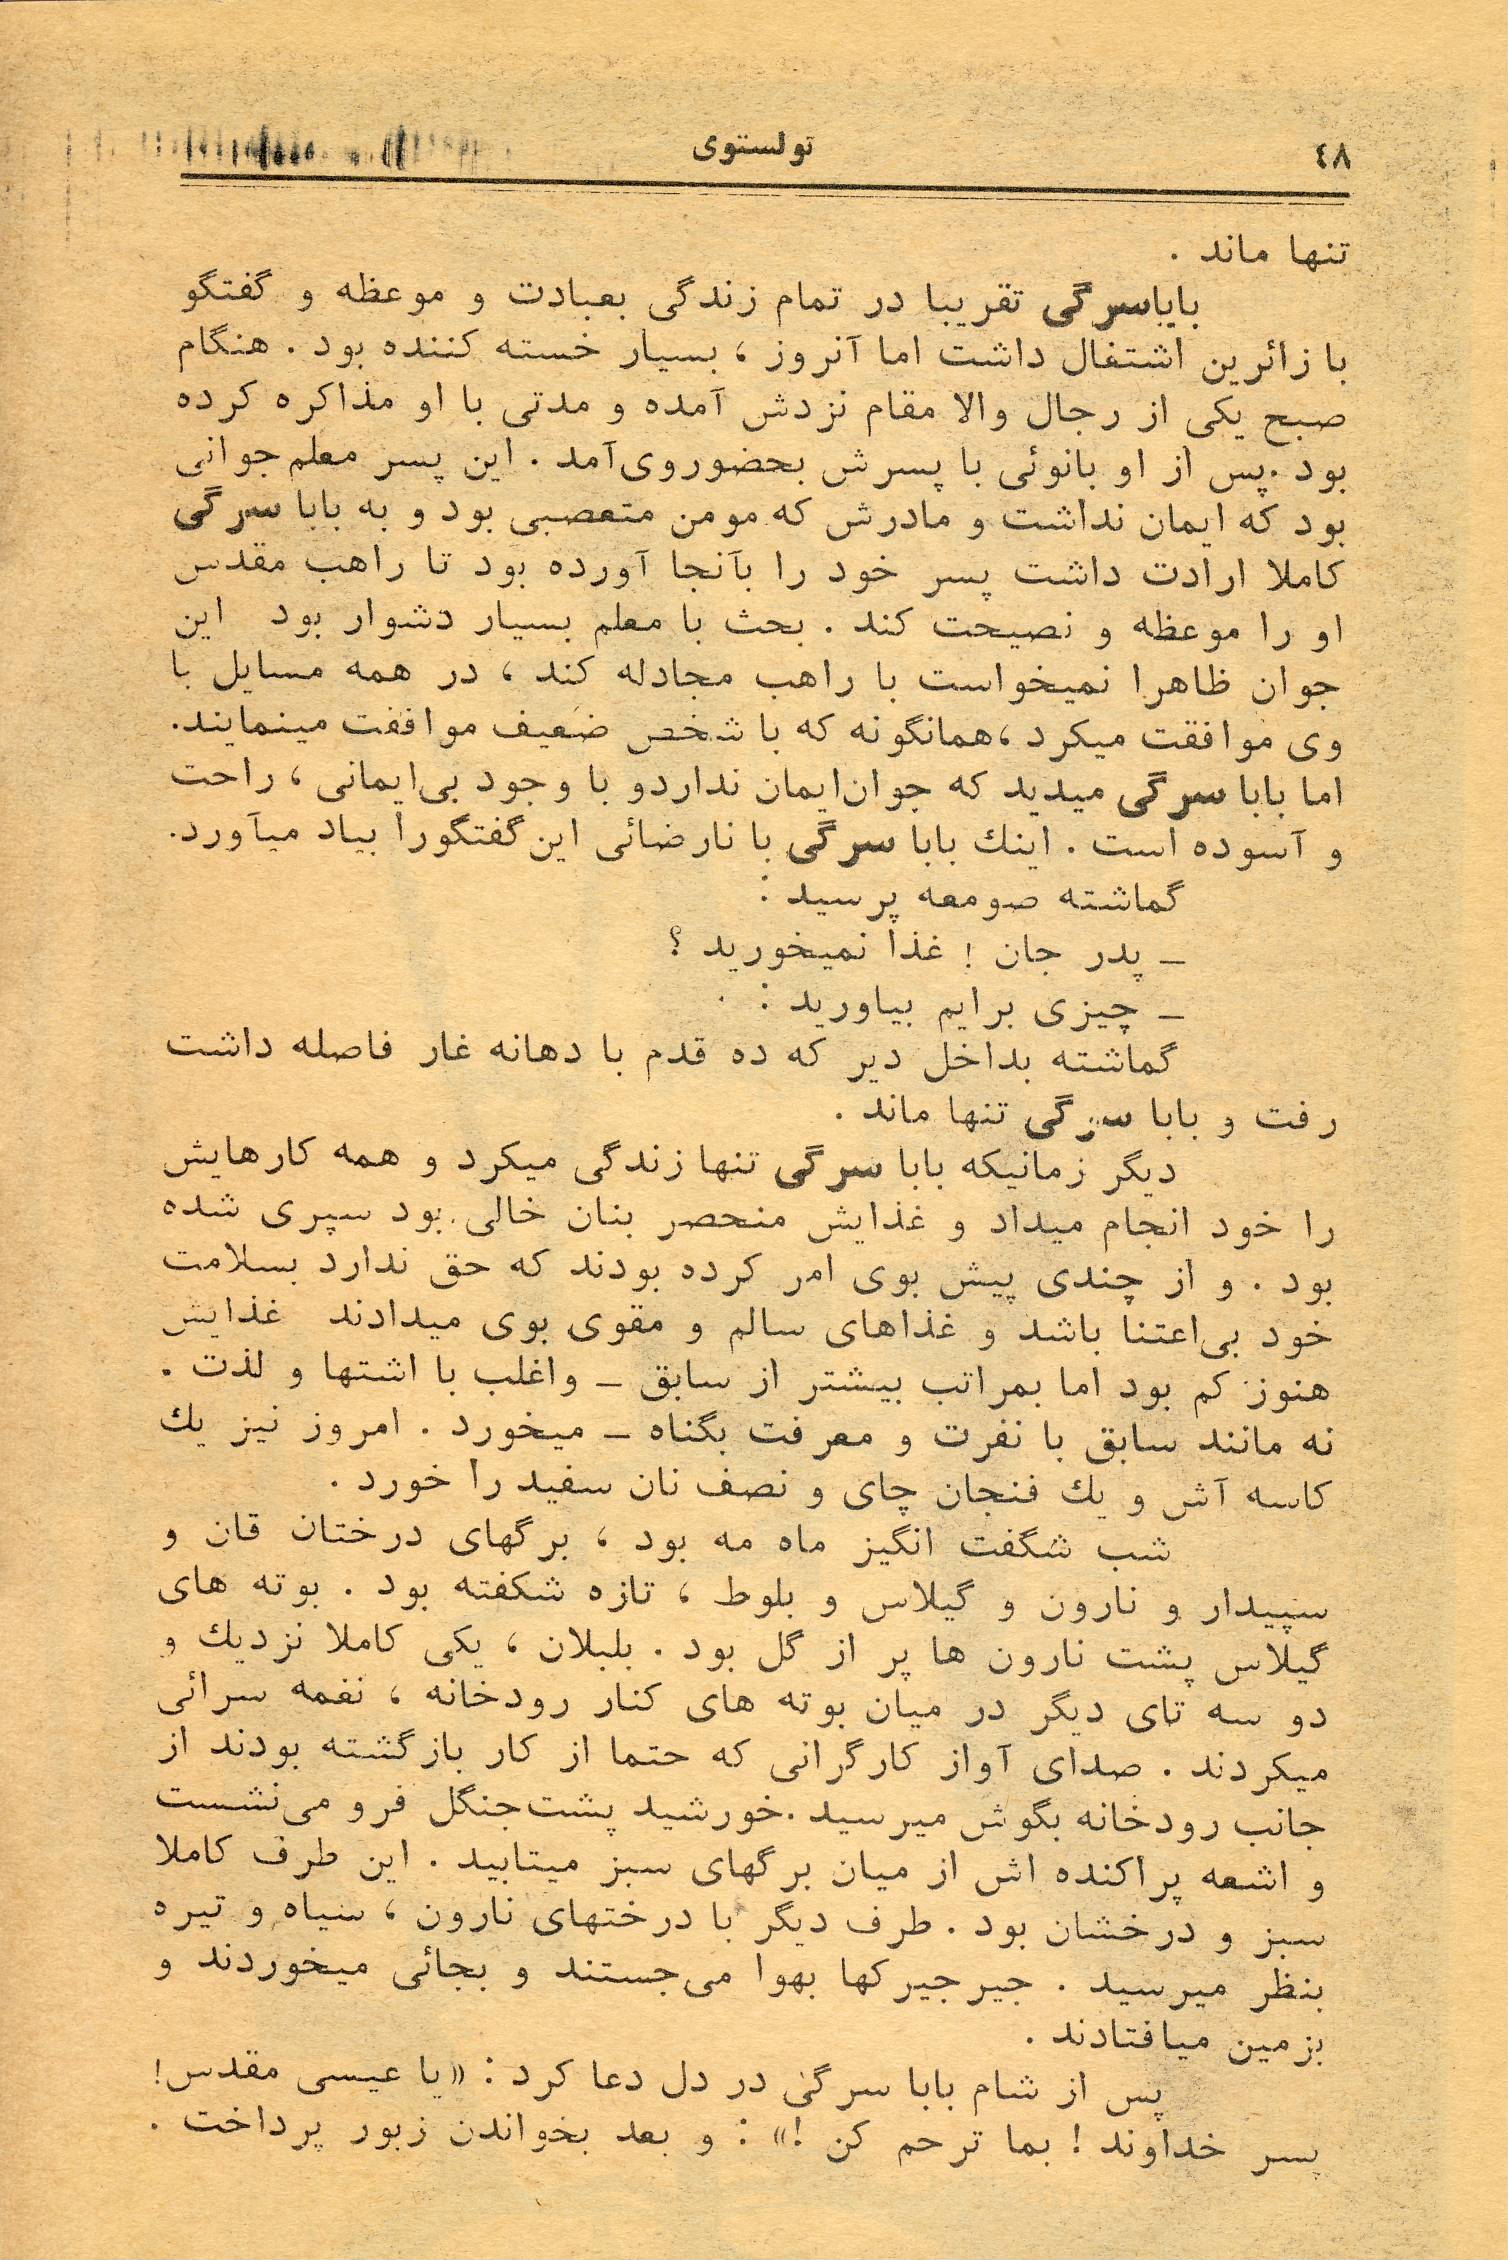 ٤٨ تولستوی
تنها ماند .
باباسرگی تقریبا در تمام زندگی بعبادت و موعظه و گفتگو
با زائرین اشتغال داشت اما آنروز ، بسیار خسته کننده بود . هنگام
صبح یکی از رجال والا مقام نزدش آمده و مدتی با او مذاکره کرده
بود .پس از او بانوئی با پسرش بحضوروی‌آمد . این پسر معلم جوانی
بود که ایمان نداشت و مادرش که مومن متعصبی بود و به بابا سرگی
کاملا ارادت داشت پسر خود را بآنجا آورده بود تا راهب مقدس
او را موعظه و نصیحت کند . بحث با معلم بسیار دشوار بود این
جوان ظاهرا نمیخواست با راهب مجادله کند ، در همه مسایل با
وی موافقت میکرد ،همانگونه که با شخص ضعیف موافقت مینمایند.
اما بابا سرگی میدید که جوان‌ایمان نداردو با وجود بی‌ایمانی ، راحت
و آسوده است . اینك بابا سرگی با نارضائی این گفتگورا بیاد میآورد.
گماشته صومعه پرسید :
ـ پدر جان ! غذا نمیخورید ؟
ـ چیزی برایم بیاورید :
گماشته بداخل دیر که ده قدم با دهانه غار فاصله داشت
رفت و بابا سرگی تنها ماند .
دیگر زمانیکه بابا سرگی تنها زندگی میکرد و همه کارهایش
را خود انجام میداد و غذایش منحصر بنان خالی بود سپری شده
بود . و از چندی پیش بوی امر کرده بودند که حق ندارد بسلامت
خود بی‌اعتنا باشد و غذاهای سالم و مقوی بوی میدادند غذایش
هنوز کم بود اما بمراتب بیشتر از سابق ـ واغلب با اشتها و لذت .
نه مانند سابق با نفرت و معرفت بگناه ـ میخورد . امروز نیز یك
کاسه آش و یك فنجان چای و نصف نان سفید را خورد .
شب شگفت انگیز ماه مه بود ، برگهای درختان قان و
سپیدار و نارون و گیلاس و بلوط ، تازه شکفته بود . بوته های
گیلاس پشت نارون ها پر از گل بود . بلبلان ، یکی کاملا نزدیك و
دو سه تای دیگر در میان بوته های کنار رودخانه ، نغمه سرائی
میکردند . صدای آواز کارگرانی که حتما از کار بازگشته بودند از
جانب رودخانه بگوش میرسید .خورشید پشت‌جنگل فرو می‌نشست
و اشعه پراکنده اش از میان برگهای سبز میتابید . این طرف کاملا
سبز و درخشان بود . طرف دیگر با درختهای نارون ، سیاه و تیره
بنظر میرسید . جیرجیرکها بهوا می‌جستند و بجائی میخوردند و
بزمین میافتادند .
پس از شام بابا سرگی در دل دعا کرد : «یا عیسی مقدس!
پسر خداوند ! بما ترحم کن !» : و بعد بخواندن زبور پرداخت .